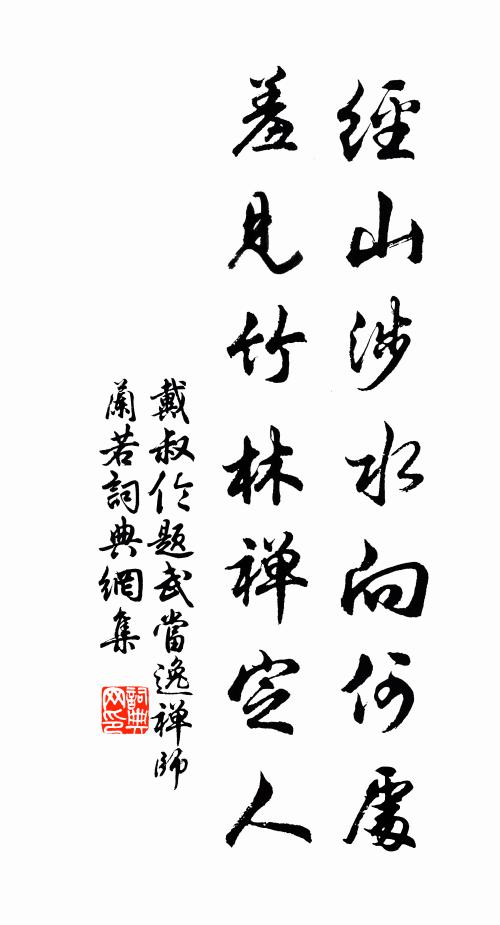 經山涉水向何處
羞見竹林禅定人
戴叔伦題武當逸禅師
蘭若詞典網集
詞典
网印